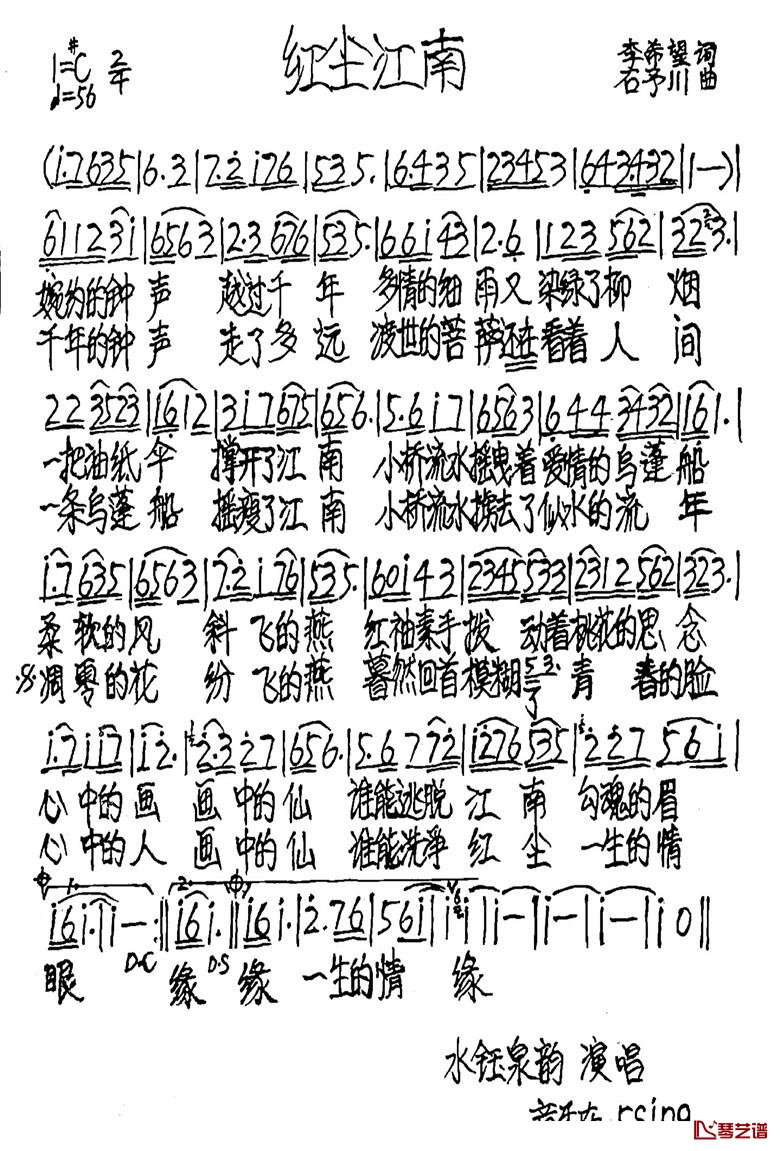 红尘江南
1=#C 2/4
♩=56
李希望 词
石予川 曲
(i·7635|6·3|7·2i76|535·|6·435|23453|643·432|1—)|
61123i|6563|2·3676|535·|66i43|2·6|123562|323·|
婉约的钟声 越过千年 多情的细雨又染绿了柳烟
千年的钟声 走了多远 渡世的菩萨还在看着人间
223523|1612|3i7675|656·|5·6i7|6563|6·44·3432|161·|
一把油纸伞 撑开了江南 小桥流水摇曳着爱情的乌蓬船
一条乌蓬船 摇瘦了江南 小桥流水掳去了似水的流年
i·7635|6563|7·2i76|535·|60i43|2345533|2312562|323·|
柔软的风 斜飞的燕 红袖素手拨动着桃花的思念
凋零的花 纷飞的燕 蓦然回首模糊了青春的脸
i·7ii7|i2·|2·327|656·|5·6772|i276535|227561|
心中的画 画中的仙 谁能逃脱江南 勾魂的眉
心中的人 画中的仙 谁能洗净红尘 一生的情
1. 2.
i6i·|i—:||i6i·||i6i·|2·76|56i|i|i—|i—|i—|i0||
D.C D.S
眼 缘 缘 一生的情 缘
水钰泉韵 演唱
琴艺谱